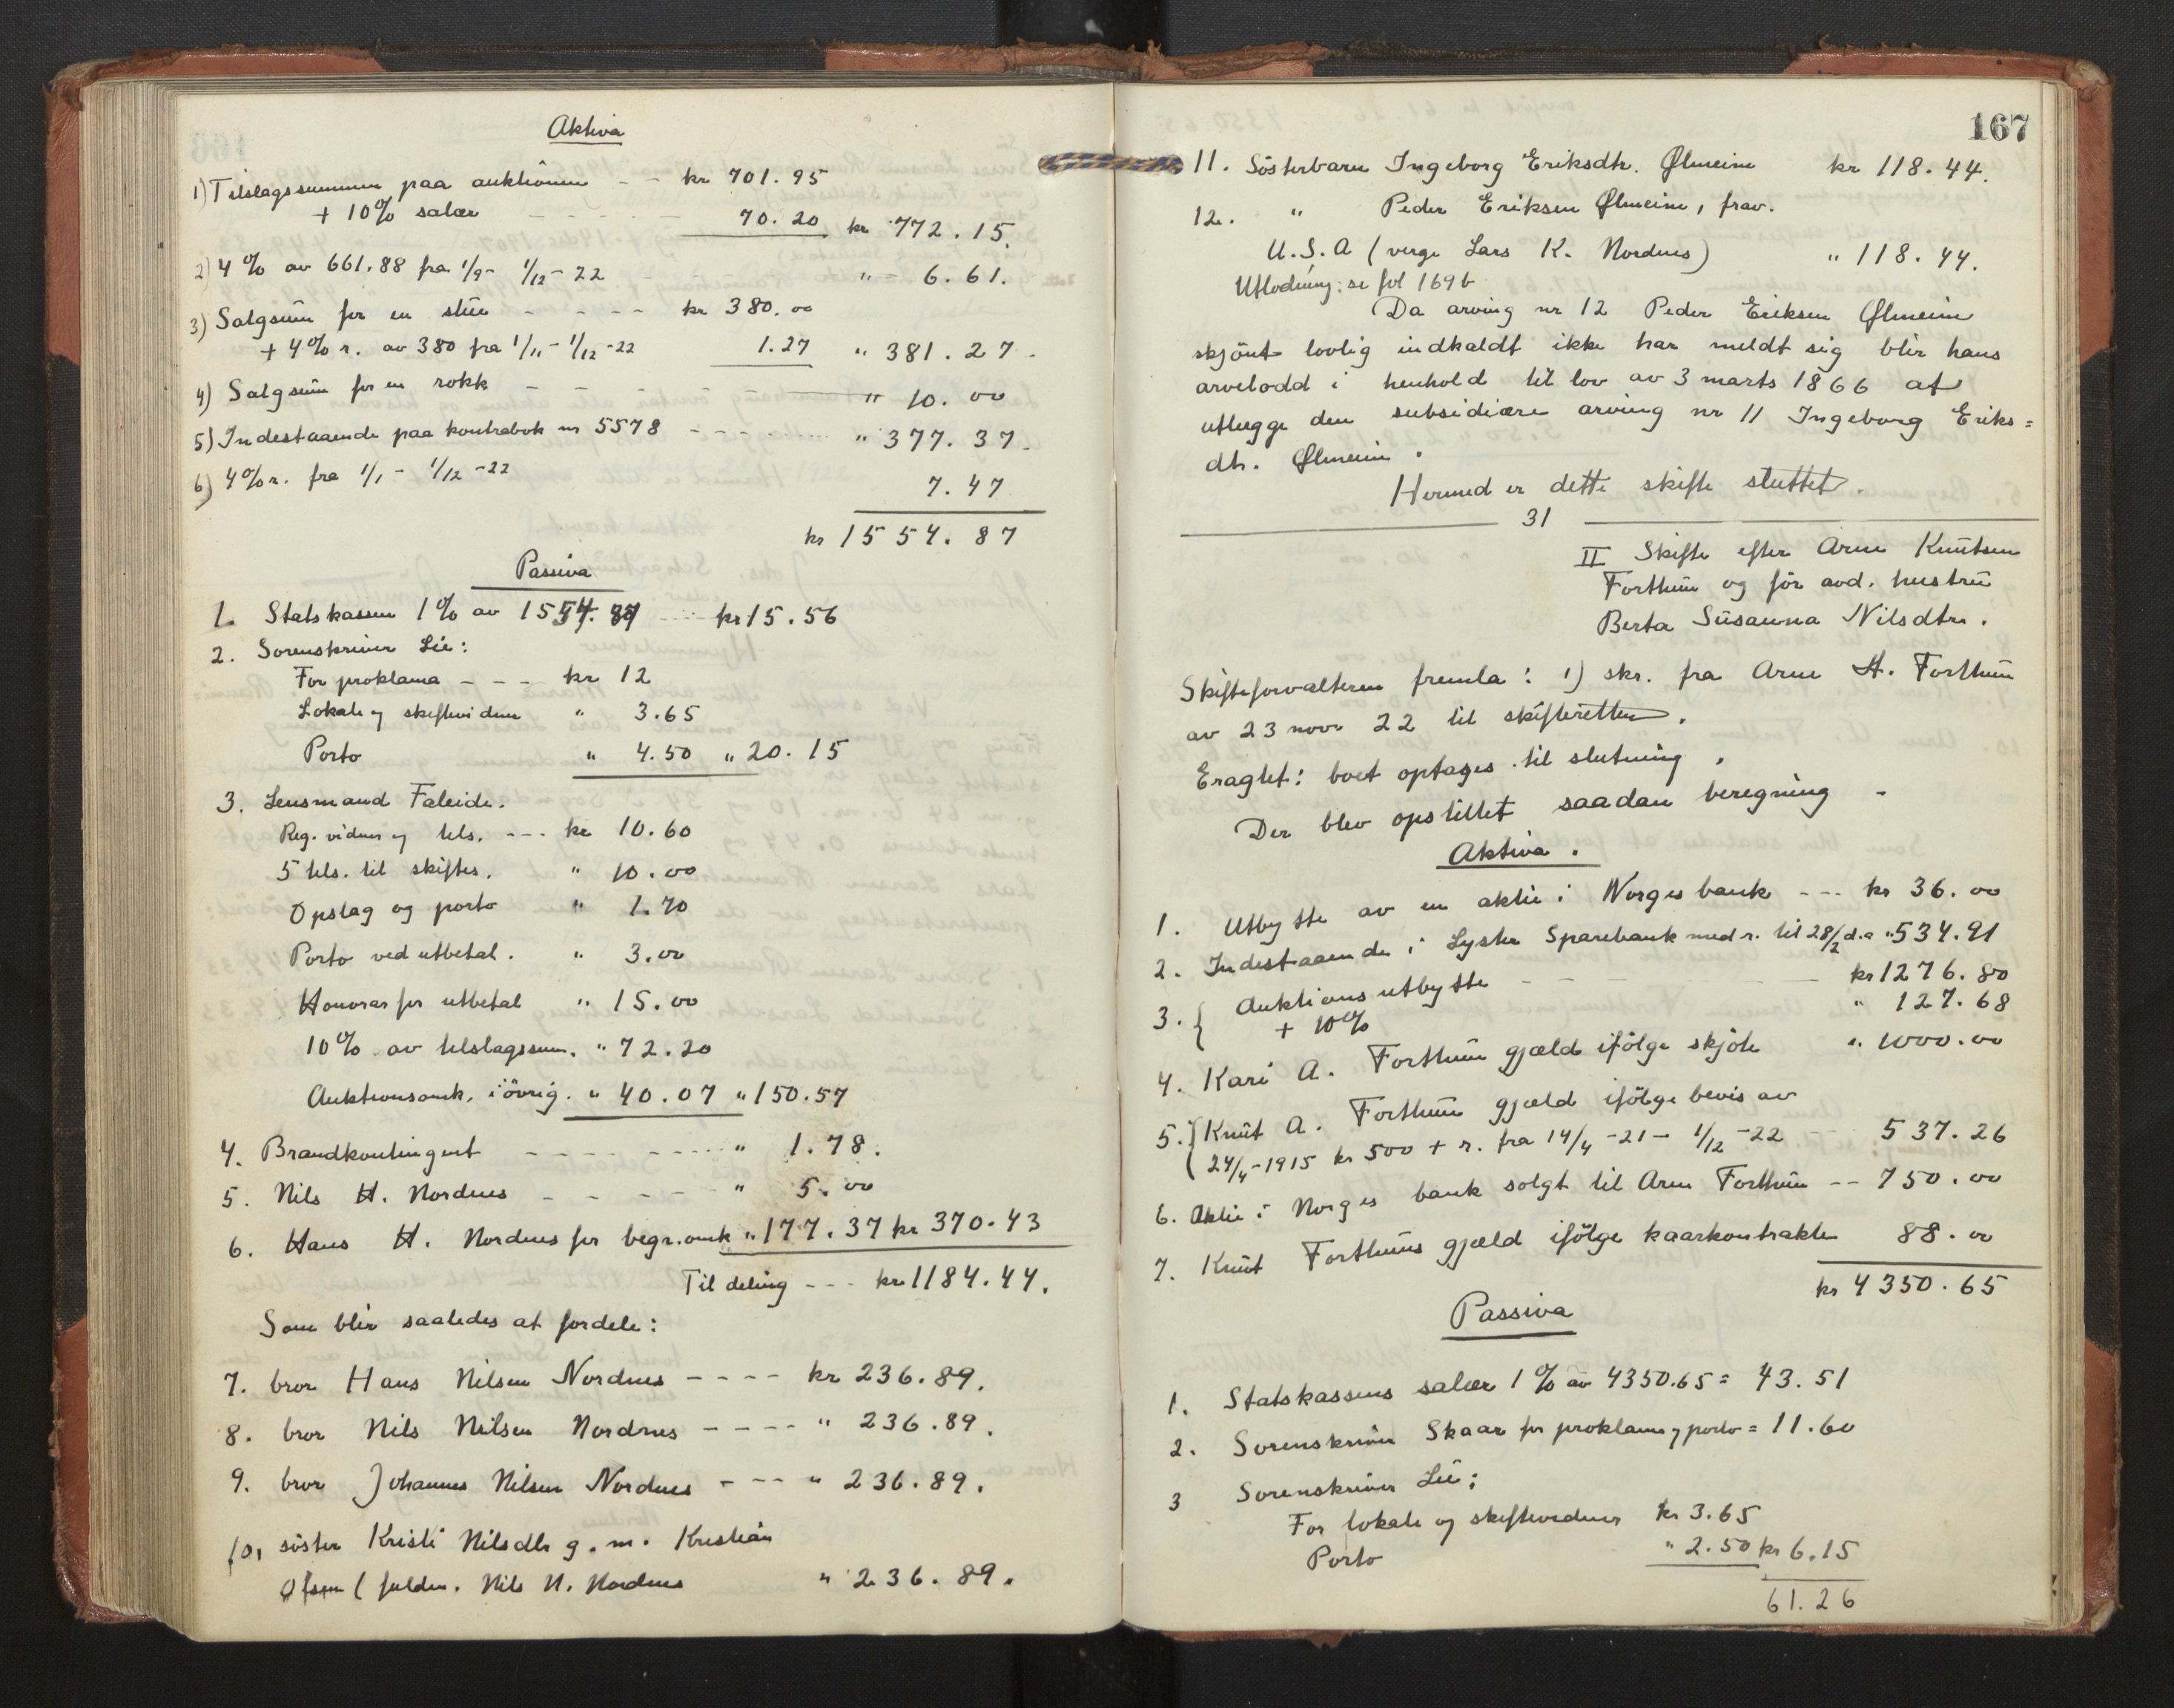 Aktiva
1) Tilslagssummen paa auktionen - - kr 701.95
+ 10% salær - - - - - 70.20 kr 772.15.
2) 4% av 661.88 fra 1/9 - 1/12 - 22 " 6.61.
3) Salgsum for en stue - - - - kr 380.00
+ 4% r. av 380 fra 1/11 - 1/12 - 22 1.27 " 381.27.
4) Salgsum for en rokk - - - - " 10.00
5) Indestaaende paa kontrabok nr 5578 - - - - " 377.37.
6) 4% r. fra 1/1 - 1/12 - 22 7.47
kr 1554.87
Passiva
1. Statskassen 1% av 1554.87 kr 15.56
2. Sorenskriver Lie:
For proklama - - - kr 12
Lokale og skiftevidner " 3.65
Porto " 4.50 " 20.15
3. Lensmand Faleide.
Reg. vidner og tils. - - - kr 10.60
5 tils. til skiftes. " 10.00
Opslag og porto " 1.70
Porto ved utbetal. " 3.00
Honorar for utbetal " 15.00
10% av tilslagssum. " 72.20
Auktionsomk. i övrig. " 40.07 " 150.57
4. Brandkontingent - - - - - " 1.78.
5. Nils H. Nordnes - - - - - " 5.00
6. Hans H. Nordnes for begr.omk " 177.37 kr 370.43
Til deling - - - kr 1184.44.
Som blir saaledes at fordele:
7. bror Hans Nilsen Nordnes - - - - kr 236.89.
8. bror Nils Nilsen Nordnes - - - - " 236.89.
9. bror Johannes Nilsen Nordnes - - - " 236.89.
10, söster Kristi Nilsdtr g. m. Kristian
( fuldm. Nils N. Nordnes " 236.89.
167
11. Sösterbarn Ingeborg Eriksdtr. Ølmeim kr 118.44.
12. " Peder Eriksen Ølmeim, frav.
U.S.A (verge Lars K. Nordnes) " 118.44.
Utlodning: se fol 169 b
Da arving nr 12 Peder Eriksen Ølmeim
skjönt lovlig indkaldt ikke har meldt sig blir hans
arvelodd i henhold til lov av 3 marts 1866 at
utlegge den subsidiære arving nr 11 Ingeborg Eriks=
dtr. Ølmeim.
Hermed er dette skifte sluttet.
31
II Skifte efter Arne Knutsen
Forthun og för avd. hustru
Berta Susanna Nilsdtr.
Skifteforvalteren fremla: 1) skr. fra Arne H. Forthun
av 23 novr 22 til skifteretten.
Eragtet: boet optages til slutning.
Der blev opstillet saadan beregning -
Aktiva.
1. Utbytte av en aktie i Norges bank - - - kr 36.00
2. Indestaaende i Lyster Sparebank med r. til 28/2 d.a " 534.91
3. { Auktions utbytte - - - kr 1276.80
+ 10% " 127.68
4. Kari A. Forthun gjæld ifölge skjöte " 1000.00
5. { Knut A. Forthun gjæld ifölge bevis av
24/4 - 1915 kr 500 + r. fra 14/4 - 21 - 1/12 - 22 537.26
6. Aktie i Norges bank solgt til Arne Forthun - - 750.00
7. Knut Forthuns gjæld ifölge kaarkontrakten 88.00
kr 4350.65
Passiva
1. Statskassens salær 1% av 4350.65 = 43.51
2. Sorenskriver Skaar for proklama og porto = 11.60
3 Sorenskriver Lie:
For lokale og skiftevidner kr 3.65
Porto " 2.50 kr 6.15
61.26